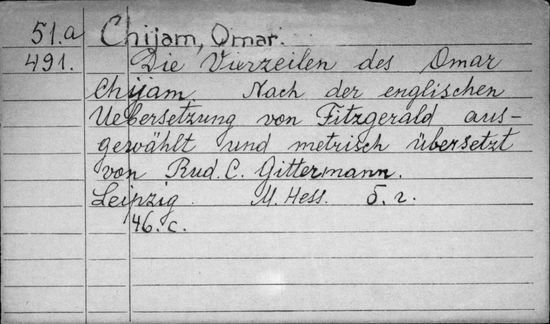 51.a Chijam, Omar.
491. Die Vierzeilen des Omar
Chijam. Nach der englischen
Uebersetzung von Fitzgerald aus-
gewählt und metrisch übersetzt
von Rud. C. Gittermann.
Leipzig. M. Hess. б. г.
46. с.